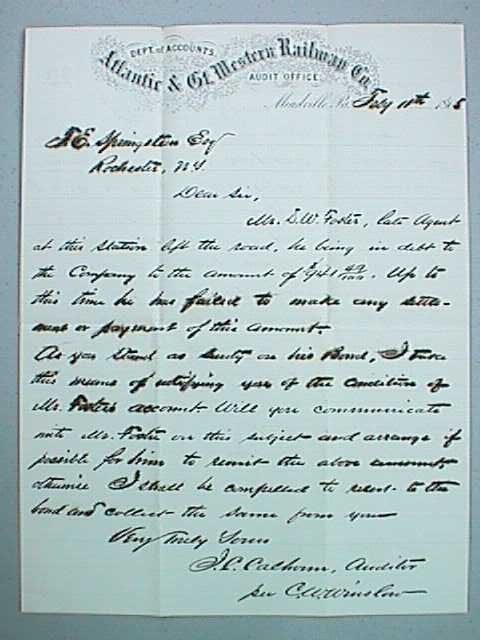 DEPT. of ACCOUNTS.
Atlantic & Gt. Western Railway Co.
AUDIT OFFICE.
Meadville Pa. Feby 10th 186
Springsten Esq
Rochester, N.Y.
Dear Sir,
Mr. D. W. Foster, late Agent
at this station left the road, he being in debt to
the Company to the amount of $941 49/100. Up to
this time he has failed to make any settle-
ment or payment of this amount
As you stand as surety on his Bond, I take
this means of notifying you of the condition of
Mr. Fosters account. Will you communicate
with Mr. Foster on this subject and arrange if
possible for him to remit the above amount
otherwise I shall be compelled to resort to the
bond and collect the same from you
Very Truly Yours
J. C. Calhoun, Auditor
per C. W. Winslow